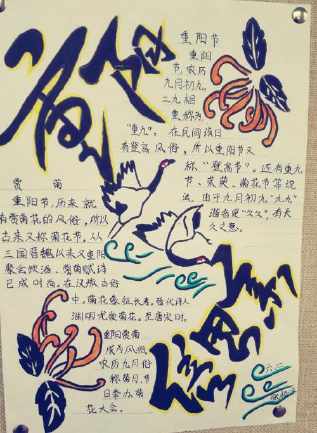 重阳
重阳节
重阳
节,农历
九月初九,
二九相
重,称为
"重九"。在民间该日
有登高风俗,所以重阳节又
称"登高节"。还有重九
节、茱萸、菊花节等说
法。由于九月初九"九九"
谐音是"久久",有长
久之意。
赏菊
重阳节,历来就
有赏菊花的风俗,所以
古来又称菊花节。从
三国晋魏以来,重阳
聚会饮酒、赏菊赋诗
已成时尚。在汉族古俗
中,菊花象征长寿。
重阳赏菊
成为风俗
农历九月俗
称菊月,节
日举办菊
花大会。